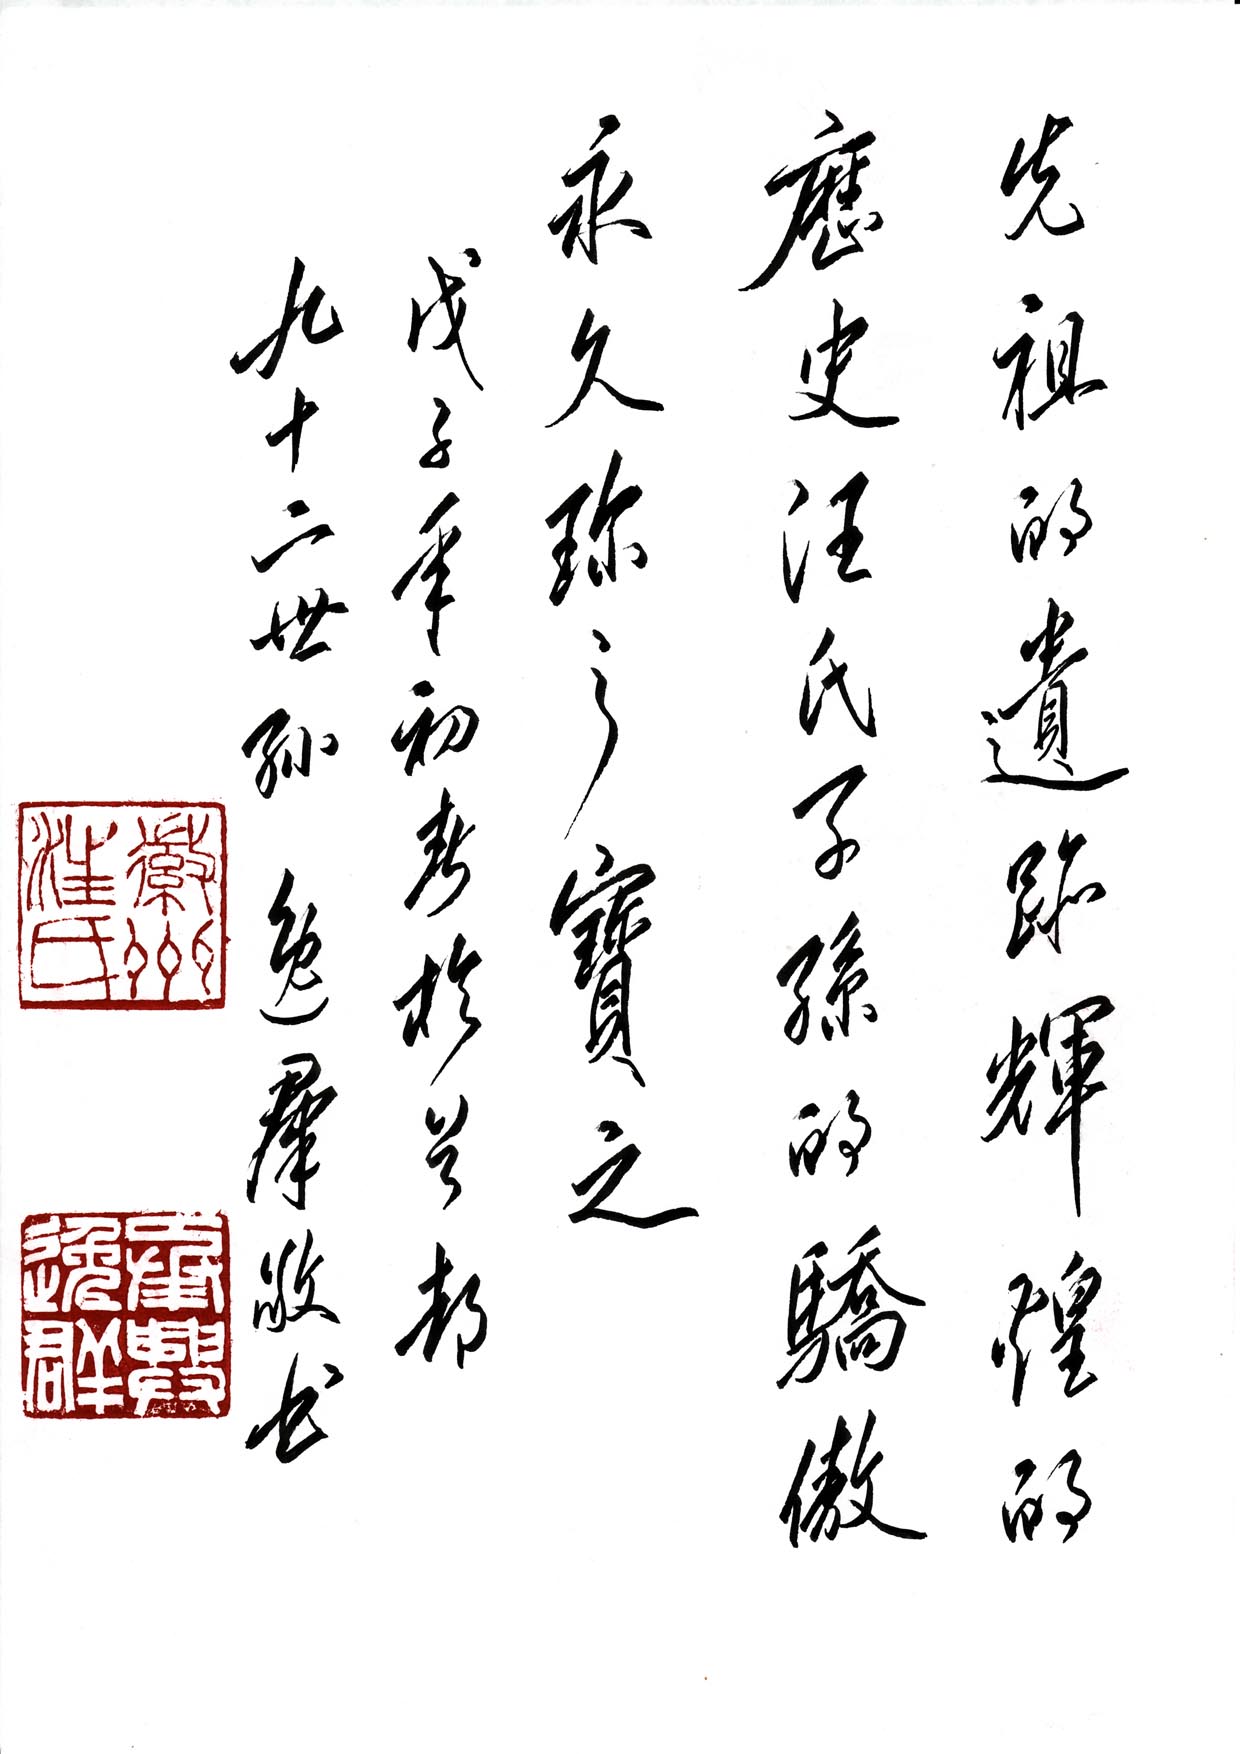 先祖的遺跡輝煌的
歷史汪氏子孫的驕傲
永久珍之寶之
戊子年初春於首都
九十二世孫 逸群敬书
徽州
汪氏
逸群